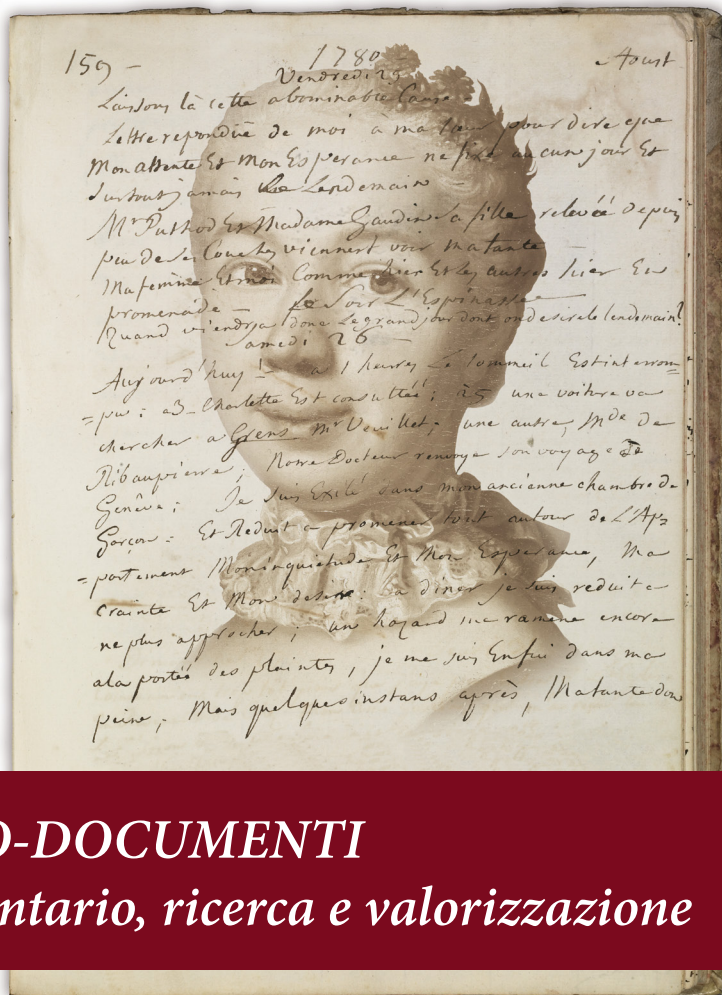 159 - 1780 Aoust
Vendredi 25
Laissons là cette abominable Cause
Lettre repondüe de moi à ma sœur pour dire que
Mon attente Et Mon Esperance ne fixe aucun jour Et
Surtout jamais Le Lendemain
Mr Puthod Et Madame Gaudin Sa fille relevéé depuis
peu de Ses Couches viennent voir ma tante
Ma femme Et moi Comme hier Et Les autres hier En
promenade Le Soir L'Espinasse
Quand viendra donc Le grand jour dont on desire le lendemain?
Samedi 26
Aujourd'huy !- a 1 heures Le Sommeil Est interrom=
=pu : a 3 Charlotte Est consultéé ; a 5 une voiture va
chercher a Grens Mr Veuillet ; une autre, Mde de
Ribaupierre ; Notre Docteur renvoye son voyage de
Genêve ; Je Suis Exilé dans mon ancienne chambre de
Garçon : Et Reduit a promener tout autour de L'Ap=
=partement Mon inquietude Et Mon Esperance, Ma
crainte Et Mon desire : a diner je suis reduit a
ne plus approcher ; un hazard me ramene encore
a la portéé des plaintes, je me suis Enfui dans ma
peine, Mais quelques instans après, Ma tante don
O-DOCUMENTI
ntario, ricerca e valorizzazione